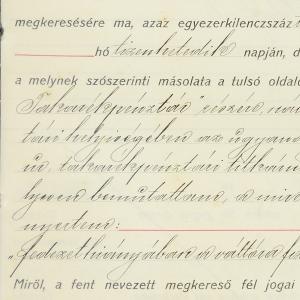 megkeresésére ma, azaz egyezerkilenczszáz
hó tizenhetedik napján, d
a melynek szószerinti másolata a tulsó oldalo
Takarékpénztár" részv. na
tári helyiségében az ugyano
úr, takarékpénztári titkár
lyen bemutattam, a mire
nyertem:
„fedezet hiányában a váltóra fiz
Miről, a fent nevezett megkereső fél jogai